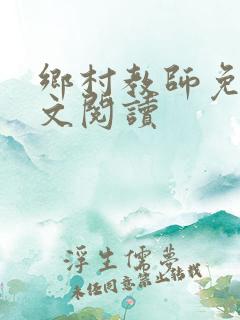 鄉村教師免
文閱讀
浮生儒夢
未經同意禁止轉載